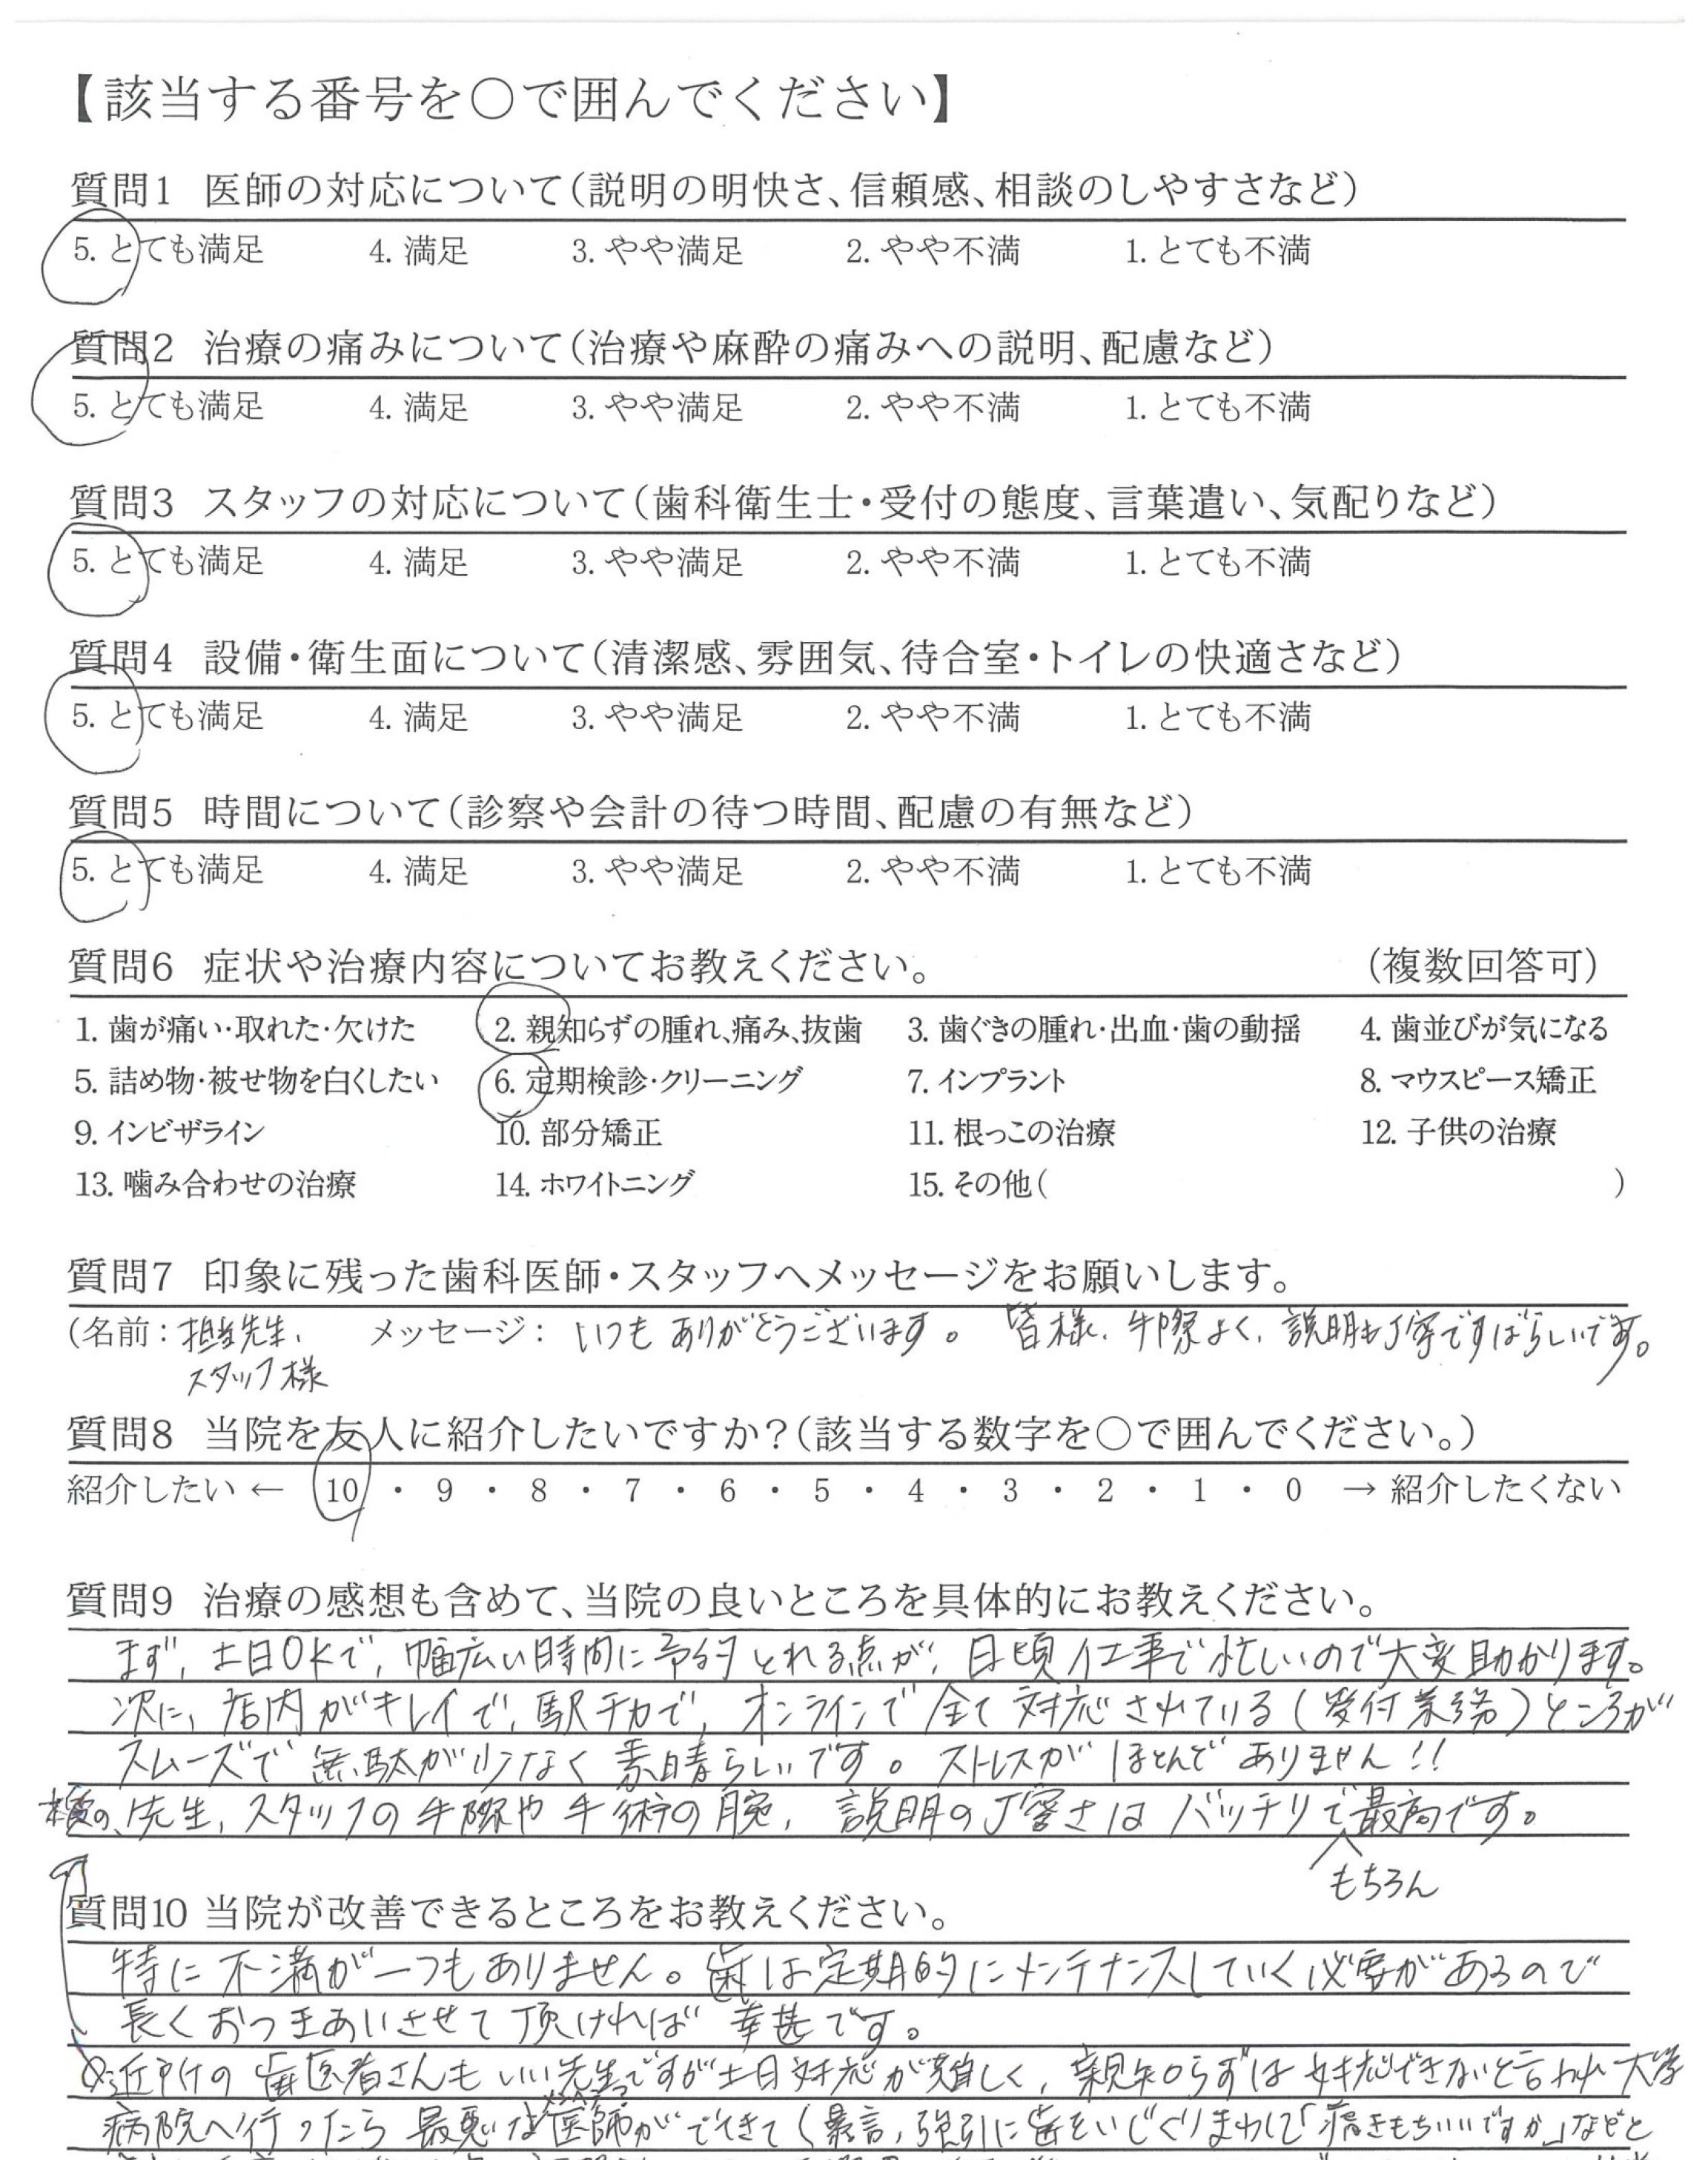 【該当する番号を〇で囲んでください】
質問1 医師の対応について(説明の明快さ、信頼感、相談のしやすさなど)
5. とても満足 4. 満足 3. やや満足 2. やや不満 1. とても不満
質問2 治療の痛みについて(治療や麻酔の痛みへの説明、配慮など)
5. とても満足 4. 満足 3. やや満足 2. やや不満 1. とても不満
質問3 スタッフの対応について(歯科衛生士・受付の態度、言葉遣い、気配りなど)
5. とても満足 4. 満足 3. やや満足 2. やや不満 1. とても不満
質問4 設備・衛生面について(清潔感、雰囲気、待合室・トイレの快適さなど)
5. とても満足 4. 満足 3. やや満足 2. やや不満 1. とても不満
質問5 時間について(診察や会計の待つ時間、配慮の有無など)
5. とても満足 4. 満足 3. やや満足 2. やや不満 1. とても不満
質問6 症状や治療内容についてお教えください。 (複数回答可)
1. 歯が痛い・取れた・欠けた 2. 親知らずの腫れ、痛み、抜歯 3. 歯ぐきの腫れ・出血・歯の動揺 4. 歯並びが気になる
5. 詰め物・被せ物を白くしたい 6. 定期検診・クリーニング 7. インプラント 8. マウスピース矯正
9. インビザライン 10. 部分矯正 11. 根っこの治療 12. 子供の治療
13. 噛み合わせの治療 14. ホワイトニング 15. その他( )
質問7 印象に残った歯科医師・スタッフへメッセージをお願いします。
(名前：担当先生、 メッセージ：いつもありがとうございます。 皆様、手際よく、説明も丁寧ですばらしいです。
スタッフ様
質問8 当院を友人に紹介したいですか？(該当する数字を〇で囲んでください。)
紹介したい ← 10 ・ 9 ・ 8 ・ 7 ・ 6 ・ 5 ・ 4 ・ 3 ・ 2 ・ 1 ・ 0 → 紹介したくない
質問9 治療の感想も含めて、当院の良いところを具体的にお教えください。
まず、土日OKで、幅広い時間に予約とれる点が、日頃仕事で忙しいので大変助かります。
次に、店内がキレイで、駅チカで、オンラインで全て対応されている(受付業務)ところが
スムーズで無駄が少なく素晴らしいです。ストレスがほとんどありません!!
先生、スタッフの手際や手術の腕、説明の丁寧さはバッチリで最高です。
もちろん
質問10 当院が改善できるところをお教えください。
特に不満が一つもありません。歯は定期的にメンテナンスしていく必要があるので
長くおつきあいさせて頂ければ幸甚です。
近所の歯医者さんもいい先生ですが土日対応が難しく、親知らずは対応できないと言われ大学
病院へ行ったら最悪な医師がでてきて(暴言、強引に歯をいじくりまわして「痛きもちいいですか」などと